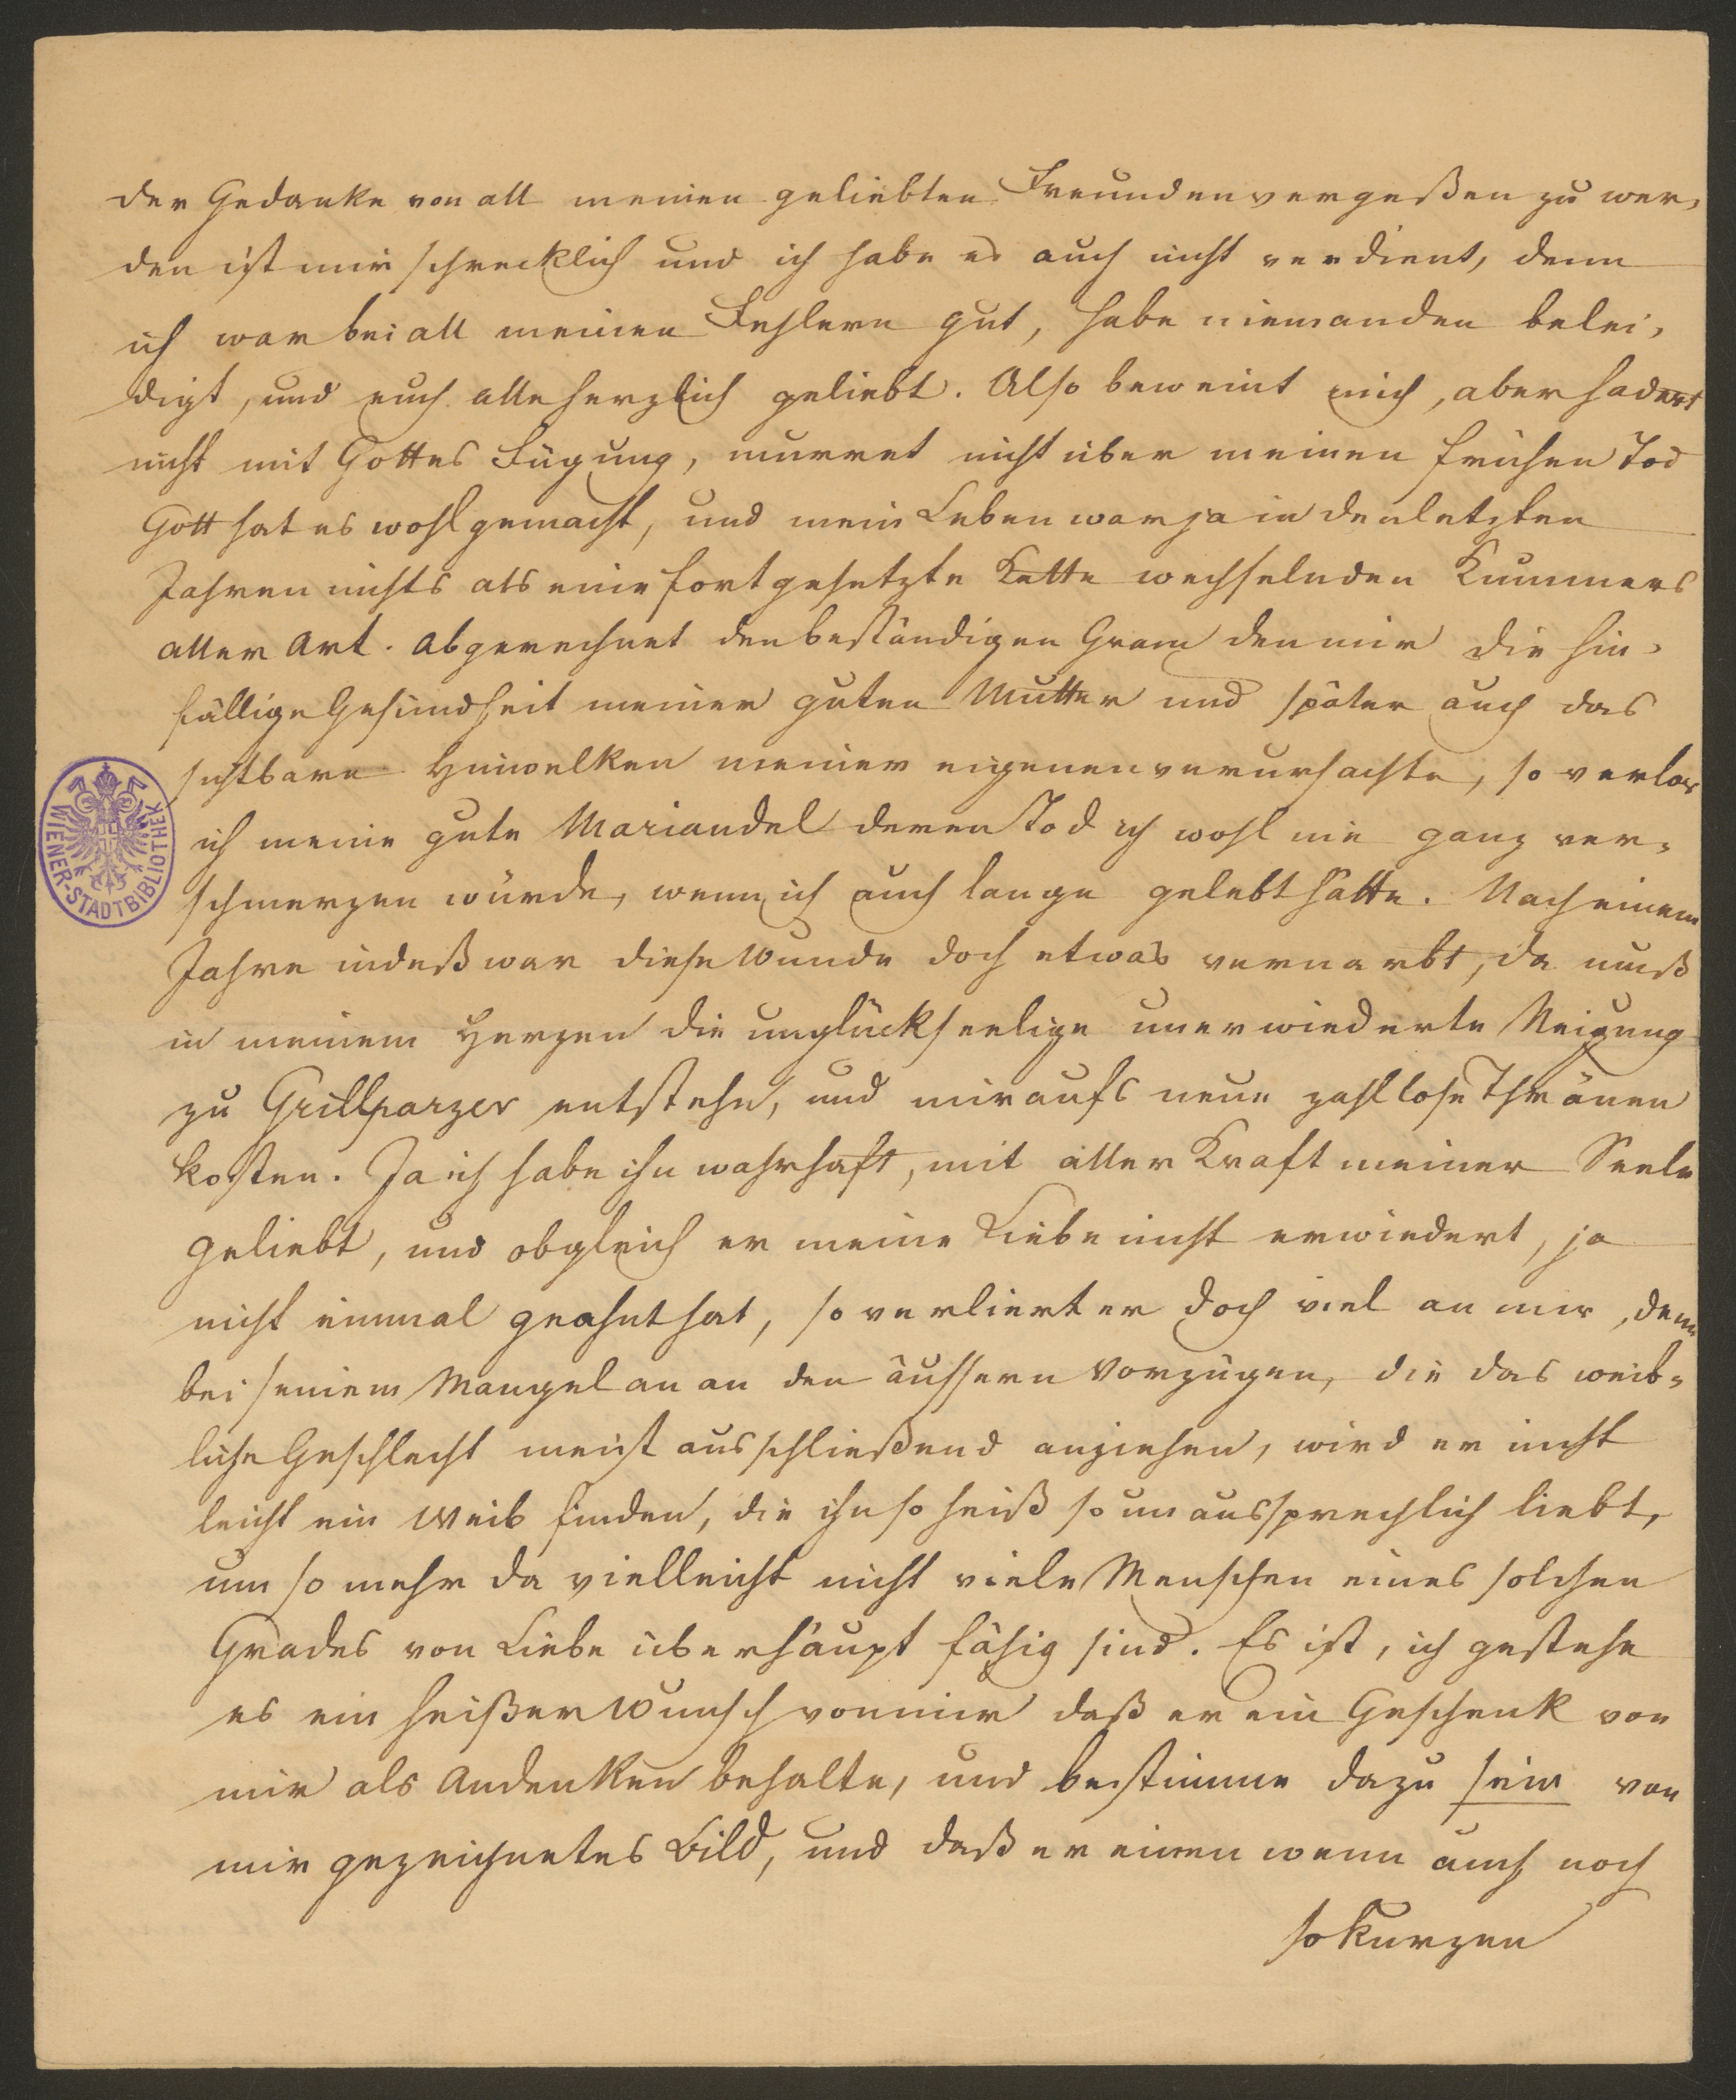 der Gedanke von all meinen geliebten Freunden vergeßen zu wer-
den ist mir schrecklich und ich habe es auch nicht verdient, denn
ich war bei all meinen Fehlern gut, habe niemanden belei-
digt, und euch alle herzlich geliebt. Also beweint mich, aber hadert
nicht mit Gottes Fügung, murret nicht über meinen frühen Tod
Gott hat es wohl gemacht, und mein Leben war ja in den letzten
Jahren nichts als eine fortgesetzte Kette wechselnden Kummers
aller Art. Abgerechnet den beständigen Gram den mir die hin-
fällige Gesundheit meiner guten Mutter und später auch das
sichtbare Hinwelken meiner eigenen verursachte, so verlor
ich meine gute Mariandel deren Tod ich wohl nie ganz ver-
schmerzen würde, wenn ich auch lange gelebt hätte. Nach einem
Jahre indeß war diese Wunde doch etwas vernarbt, da muß
in meinem Herzen die unglückseelige unerwiederte Neigung
zu Grillparzer entstehn, und mir aufs neue zahllose Thränen
kosten. Ja ich habe ihn wahrhaft, mit aller Kraft meiner Seele
geliebt, und obgleich er meine Liebe nicht erwiedert, ja
nicht einmal geahnt hat, so verliert er doch viel an mir, denn
bei seinem Mangel an an den äussern Vorzügen, die das weib-
liche Geschlecht meist ausschließend anziehen, wird er nicht
leicht ein Weib finden, die ihn so heiß so unaussprechlich liebt,
um so mehr da vielleicht nicht viele Menschen eines solchen
Grades von Liebe überhaupt fähig sind. Es ist, ich gestehe
es ein heißer Wunsch von mir daß er ein Geschenk von
mir als Andenken behalte, und bestimme dazu sein von
mir gezeichnetes Bild, und daß er einen wenn auch noch
so kurzen
WIENER-STADTBIBLIOTHEK